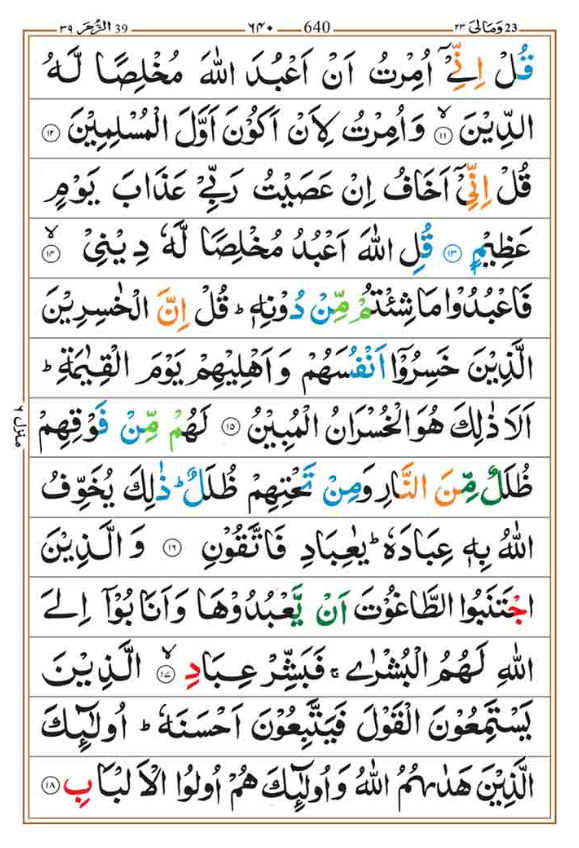 الزمر 39 ٣٩ ٦٤٠ 640 ومالی 23 ٢٣
قُلْ اِنِّیْۤ اُمِرْتُ اَنْ اَعْبُدَ اللّٰهَ مُخْلِصًا لَّهُ
الدِّیْنَ ۙ﴿۱۱﴾ وَ اُمِرْتُ لِاَنْ اَكُوْنَ اَوَّلَ الْمُسْلِمِیْنَ ﴿۱۲﴾
قُلْ اِنِّیْۤ اَخَافُ اِنْ عَصَیْتُ رَبِّیْ عَذَابَ یَوْمٍ
عَظِیْمٍ ﴿۱۳﴾ قُلِ اللّٰهَ اَعْبُدُ مُخْلِصًا لَّهٗ دِیْنِیْ ۙ﴿۱۴﴾
فَاعْبُدُوْا مَا شِئْتُمْ مِّنْ دُوْنِهٖ ؕ قُلْ اِنَّ الْخٰسِرِیْنَ
الَّذِیْنَ خَسِرُوْۤا اَنْفُسَهُمْ وَ اَهْلِیْهِمْ یَوْمَ الْقِیٰمَةِ ؕ
اَلَا ذٰلِكَ هُوَ الْخُسْرَانُ الْمُبِیْنُ ﴿۱۵﴾ لَهُمْ مِّنْ فَوْقِهِمْ
ظُلَلٌ مِّنَ النَّارِ وَ مِنْ تَحْتِهِمْ ظُلَلٌ ؕ ذٰلِكَ یُخَوِّفُ
اللّٰهُ بِهٖ عِبَادَهٗ ؕ یٰعِبَادِ فَاتَّقُوْنِ ﴿۱۶﴾ وَ الَّذِیْنَ
اجْتَنَبُوا الطَّاغُوْتَ اَنْ یَّعْبُدُوْهَا وَ اَنَابُوْۤا اِلَی
اللّٰهِ لَهُمُ الْبُشْرٰی ۚ فَبَشِّرْ عِبَادِ ۙ﴿۱۷﴾ الَّذِیْنَ
یَسْتَمِعُوْنَ الْقَوْلَ فَیَتَّبِعُوْنَ اَحْسَنَهٗ ؕ اُولٰٓىِٕكَ
الَّذِیْنَ هَدٰىهُمُ اللّٰهُ وَ اُولٰٓىِٕكَ هُمْ اُولُوا الْاَلْبَابِ ﴿۱۸﴾
منزل ٦